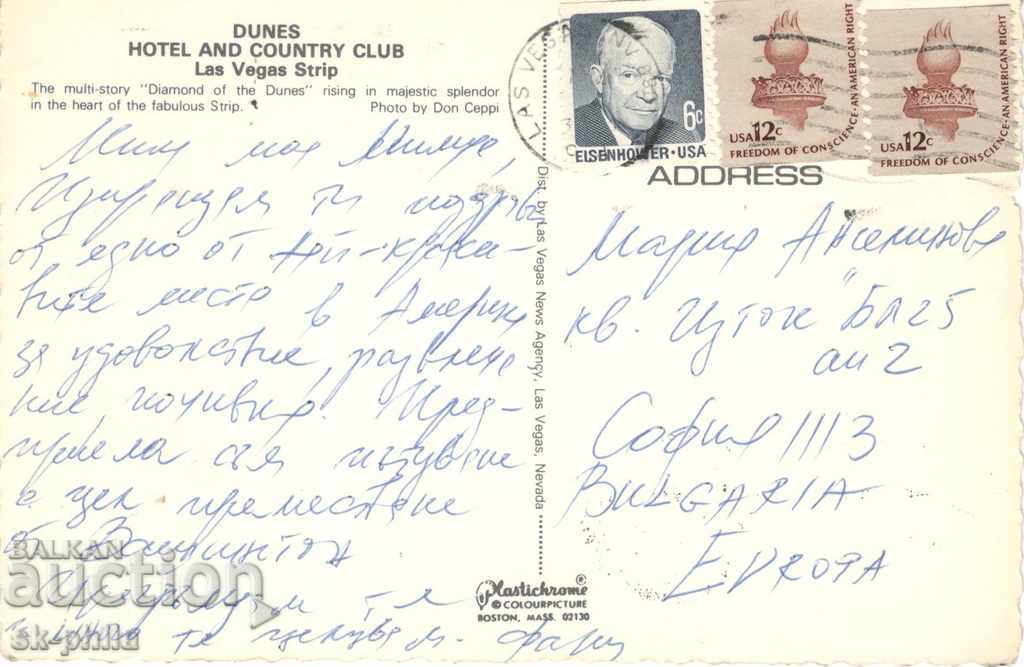 DUNES
HOTEL AND COUNTRY CLUB
Las Vegas Strip
The multi-story "Diamond of the Dunes" rising in majestic splendor
in the heart of the fabulous Strip.
Photo by Don Ceppi
Мила моя
Изпращам ти поздрав
от едно от най-краси-
вите места в Америка
за удоволствие, развлече
ние, почивка. Пред-
приела съм пътуване
с цел преместване
от Вашингтон
Прегръщам те
и те целувам.
Dist. by Las Vegas News Agency, Las Vegas, Nevada
Plastichrome®
© COLOURPICTURE
BOSTON, MASS. 02130
LAS VEGAS NV
6c
EISENHOWER·USA
USA 12c
FREEDOM OF CONSCIENCE·AN AMERICAN RIGHT
USA 12c
FREEDOM OF CONSCIENCE·AN AMERICAN RIGHT
ADDRESS
Мария Ангелинова
кв. Изток Бл 25
ап 2
София 1113
BULGARIA
EVROPA
BALKAN
auction
sk-phila